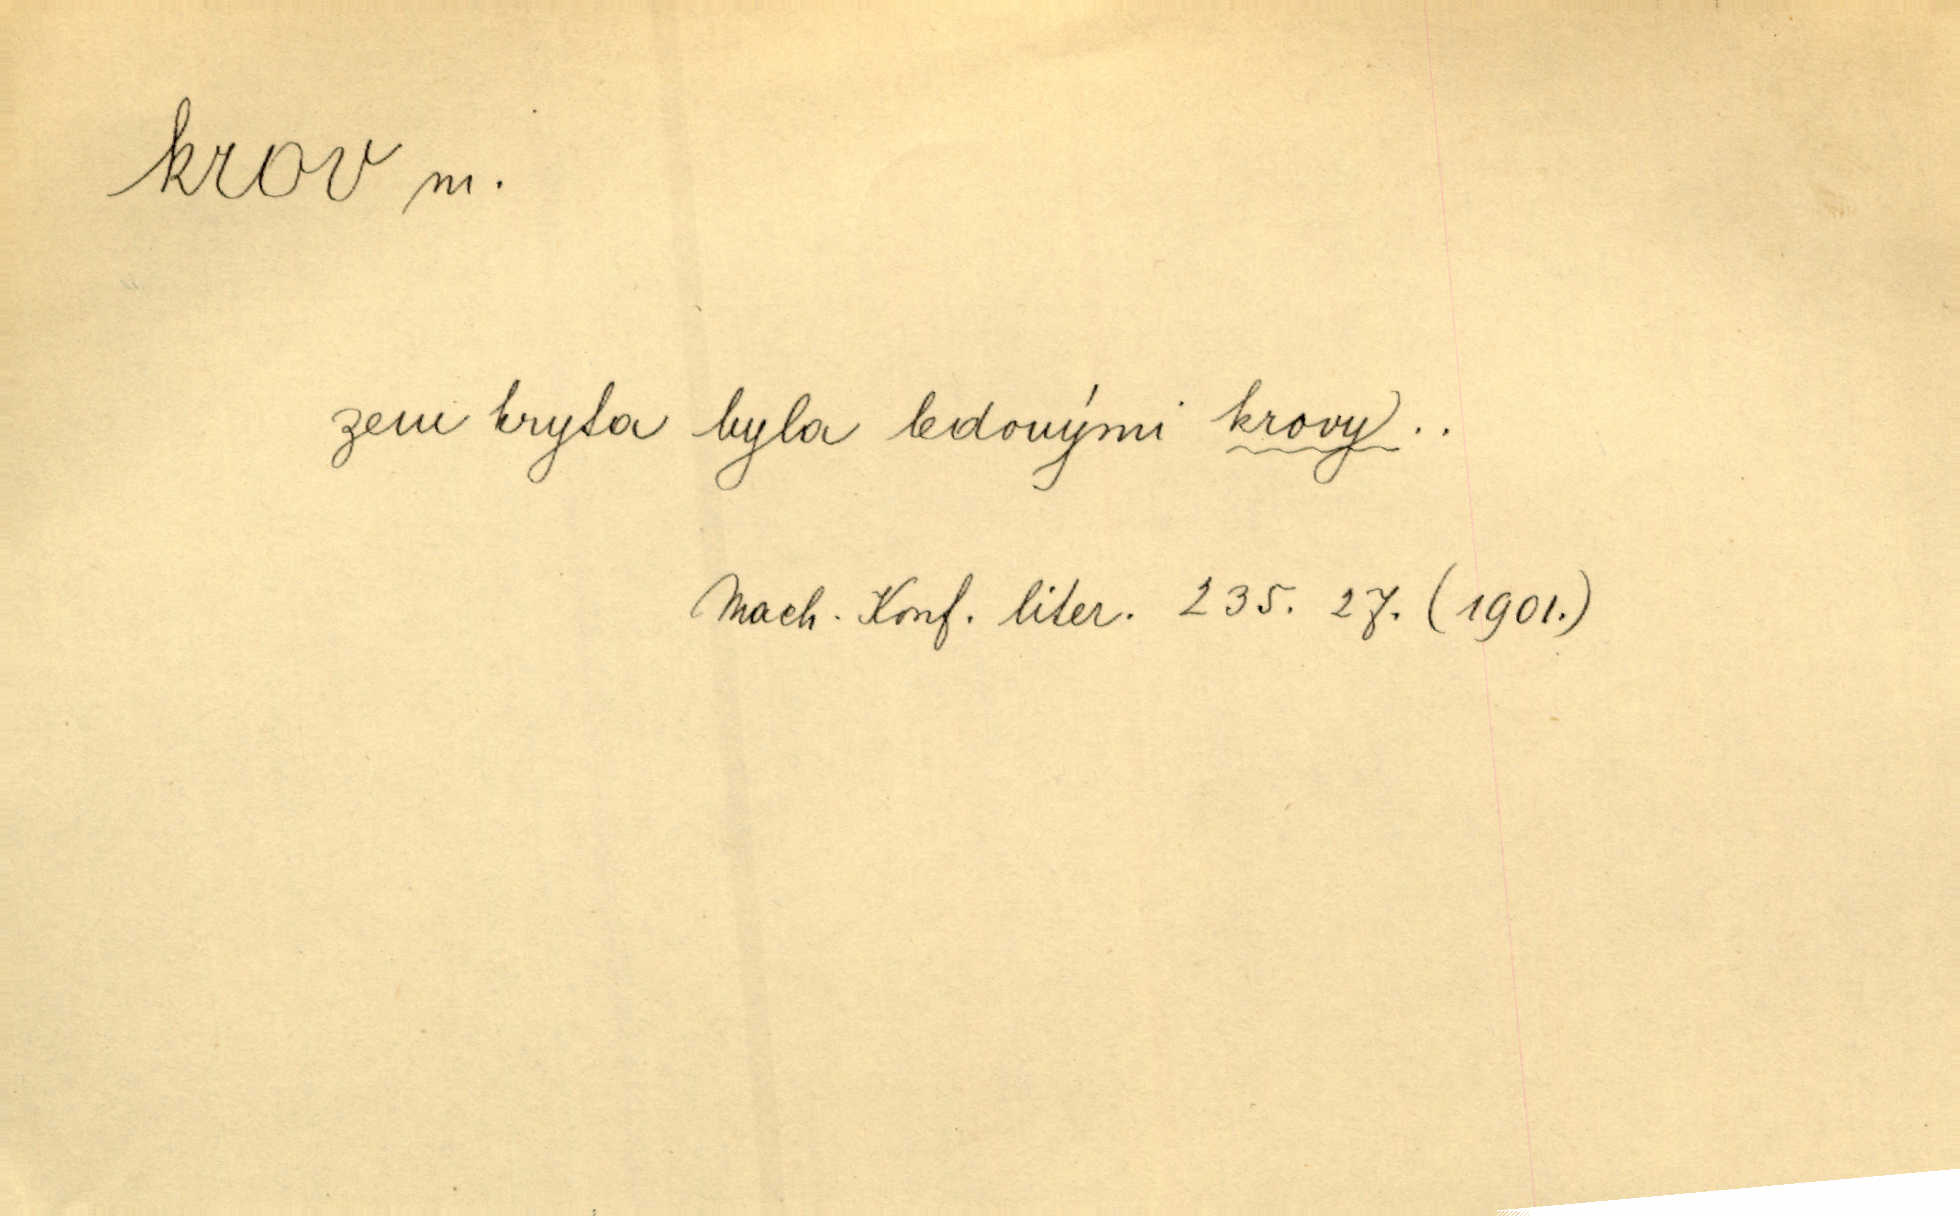 krov m.
zem kryta byla ledovými krovy..
Mach. Konf. liter. 235. 27. (1901.)